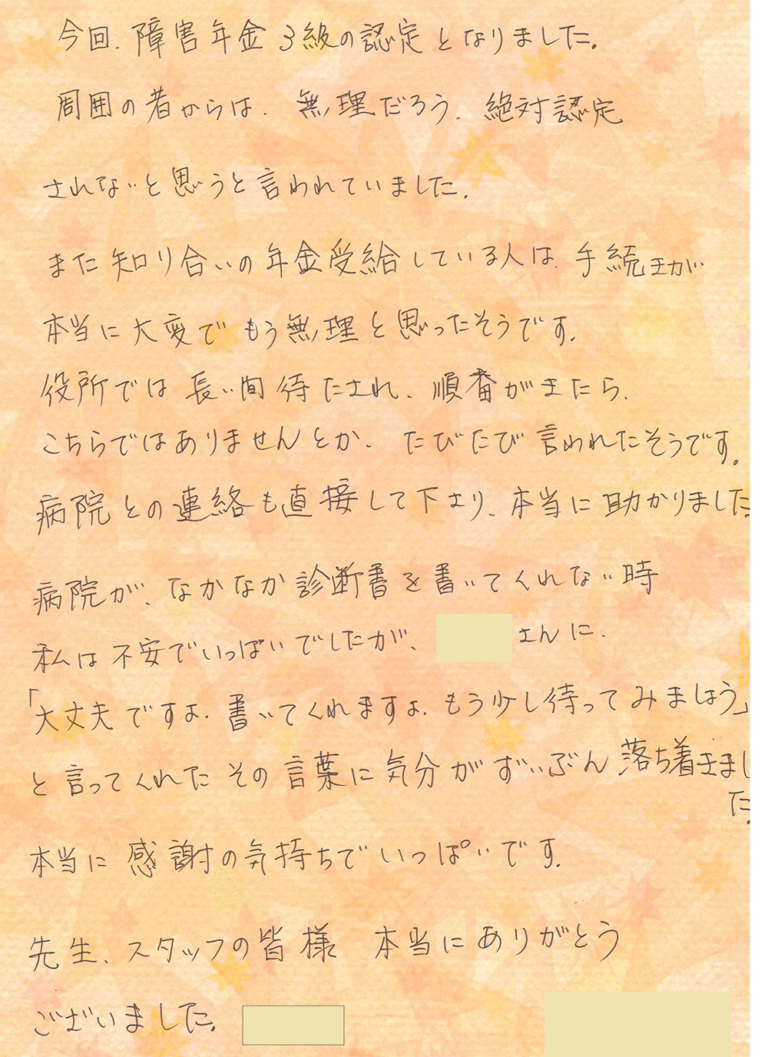 今回、障害年金3級の認定となりました。
周囲の者からは、無理だろう、絶対認定
されないと思うと言われていました。
また知り合いの年金受給している人は、手続きが
本当に大変でもう無理と思ったそうです。
役所では長い間待たされ、順番がきたら、
こちらではありませんとか、たびたび言われたそうです。
病院との連絡も直接して下さり、本当に助かりました
病院が、なかなか診断書を書いてくれない時
私は不安でいっぱいでしたが、 さんに、
「大丈夫ですよ、書いてくれますよ、もう少し待ってみましょう」
と言ってくれたその言葉に気分がずいぶん落ち着きまし
た。
本当に感謝の気持ちでいっぱいです。
先生、スタッフの皆様 本当にありがとう
ございました。